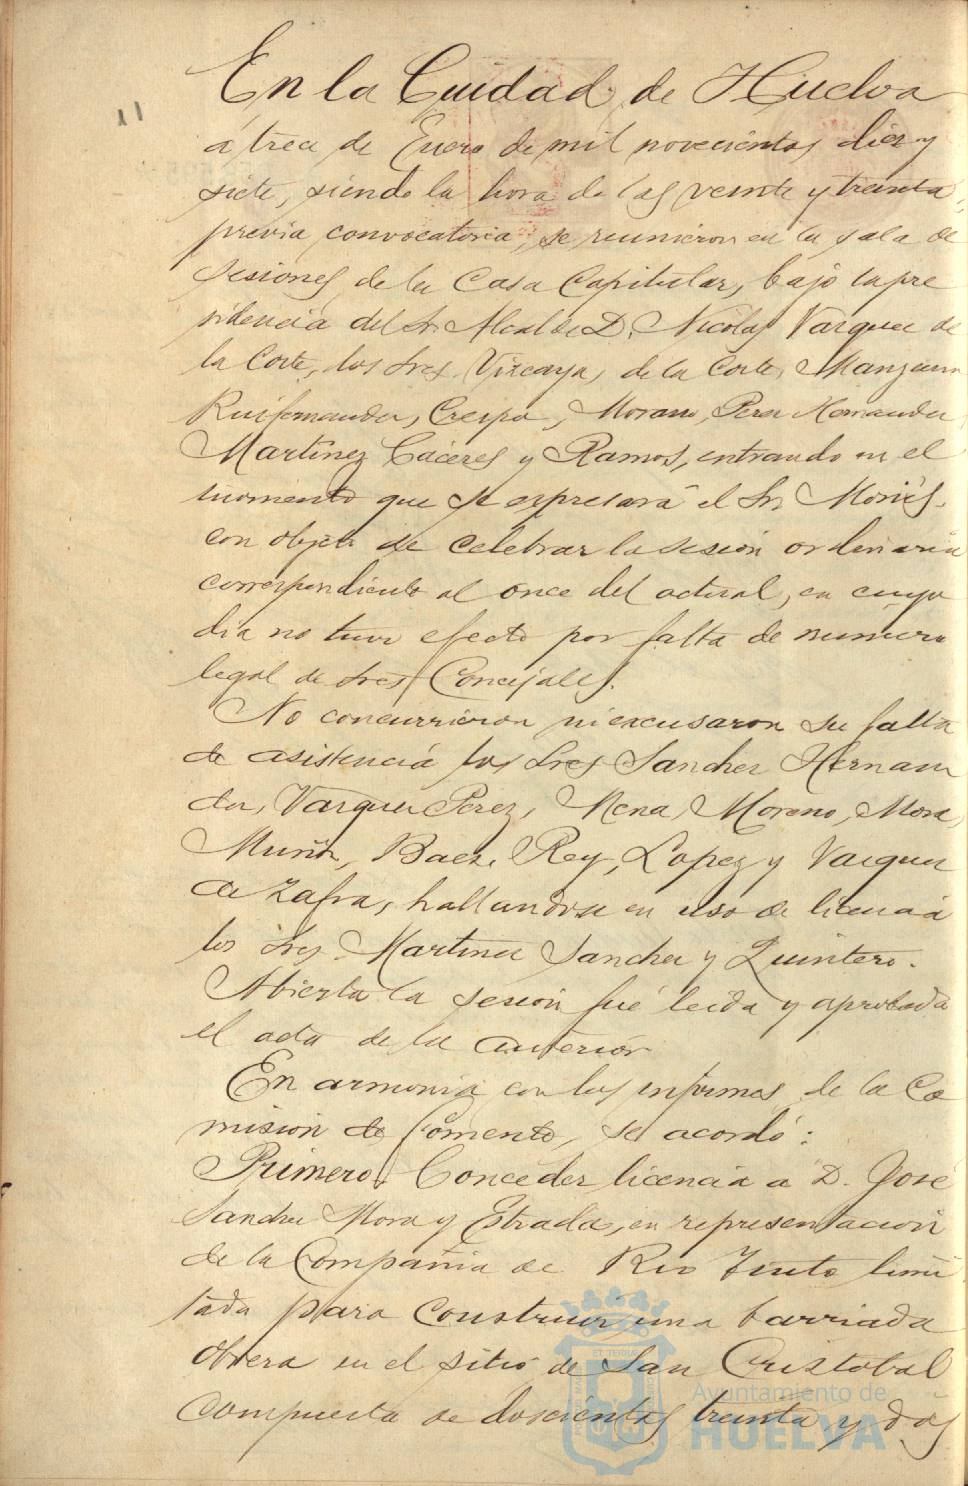 11
En la Ciudad de Huelva
á trece de Enero de mil novecientos diez y
siete, siendo la hora de las veinte y treinta,
previa convocatoria, se reunieron en la sala de
sesiones de la Casa Capitular, bajo la pre
sidencia del Sr. Alcalde D. Nicolas Vazquez de
la Corte, los Sres. Vizcaya, de la Corte, Manzano
Ruifernandez, Crespo, Morano, Perez Hernandez
Martinez Cáceres y Ramos, entrando en el
momento que se expresará el Sr.
con objeto de celebrar la sesión ordinaria
correspondiente al once del actual, en cuyo
dia no tuvo efecto por falta de numero
legal de Sres Concejales.
No concurrieron ni excusaron su falta
de asistencia los Sres Sanchez Hernan
dez, Vazquez Perez, Mena, Moreno, Mora,
Muñoz, Baez, Rey, Lopez y Vazquez
de Zafra, hallandose en uso de licencia
los Sres. Martinez Sanchez y Quintero.
Abierta la sesión fué leida y aprobada
el acta de la anterior
En armonia con los informes de la Co
mision de Fomento, se acordó:
Primero. Conceder licencia a D. José
Sanchez Mora y Estrada, en representación
de la Compañia de Rio Tinto limi
tada para construir una barriada
obrera en el sitio de San Cristobal
compuesta de doscientas treinta y dos
Ayuntamiento de
HUELVA